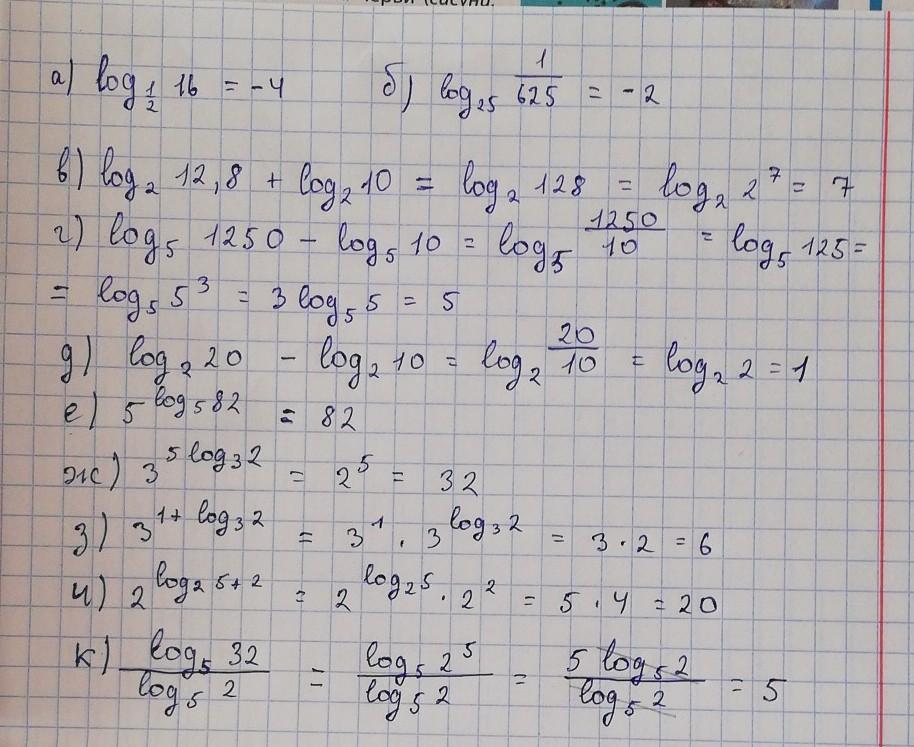 а) log_{1/2} 16 = -4 б) log_{25} 1/625 = -2
в) log_2 12,8 + log_2 10 = log_2 128 = log_2 2^7 = 7
г) log_5 1250 - log_5 10 = log_5 1250/10 = log_5 125 =
= log_5 5^3 = 3 log_5 5 = 5
д) log_2 20 - log_2 10 = log_2 20/10 = log_2 2 = 1
е) 5^{log_5 82} = 82
ж) 3^{5 log_3 2} = 2^5 = 32
з) 3^{1 + log_3 2} = 3^1 · 3^{log_3 2} = 3 · 2 = 6
и) 2^{log_2 5 + 2} = 2^{log_2 5} · 2^2 = 5 · 4 = 20
к) log_5 32 / log_5 2 = log_5 2^5 / log_5 2 = 5 log_5 2 / log_5 2 = 5